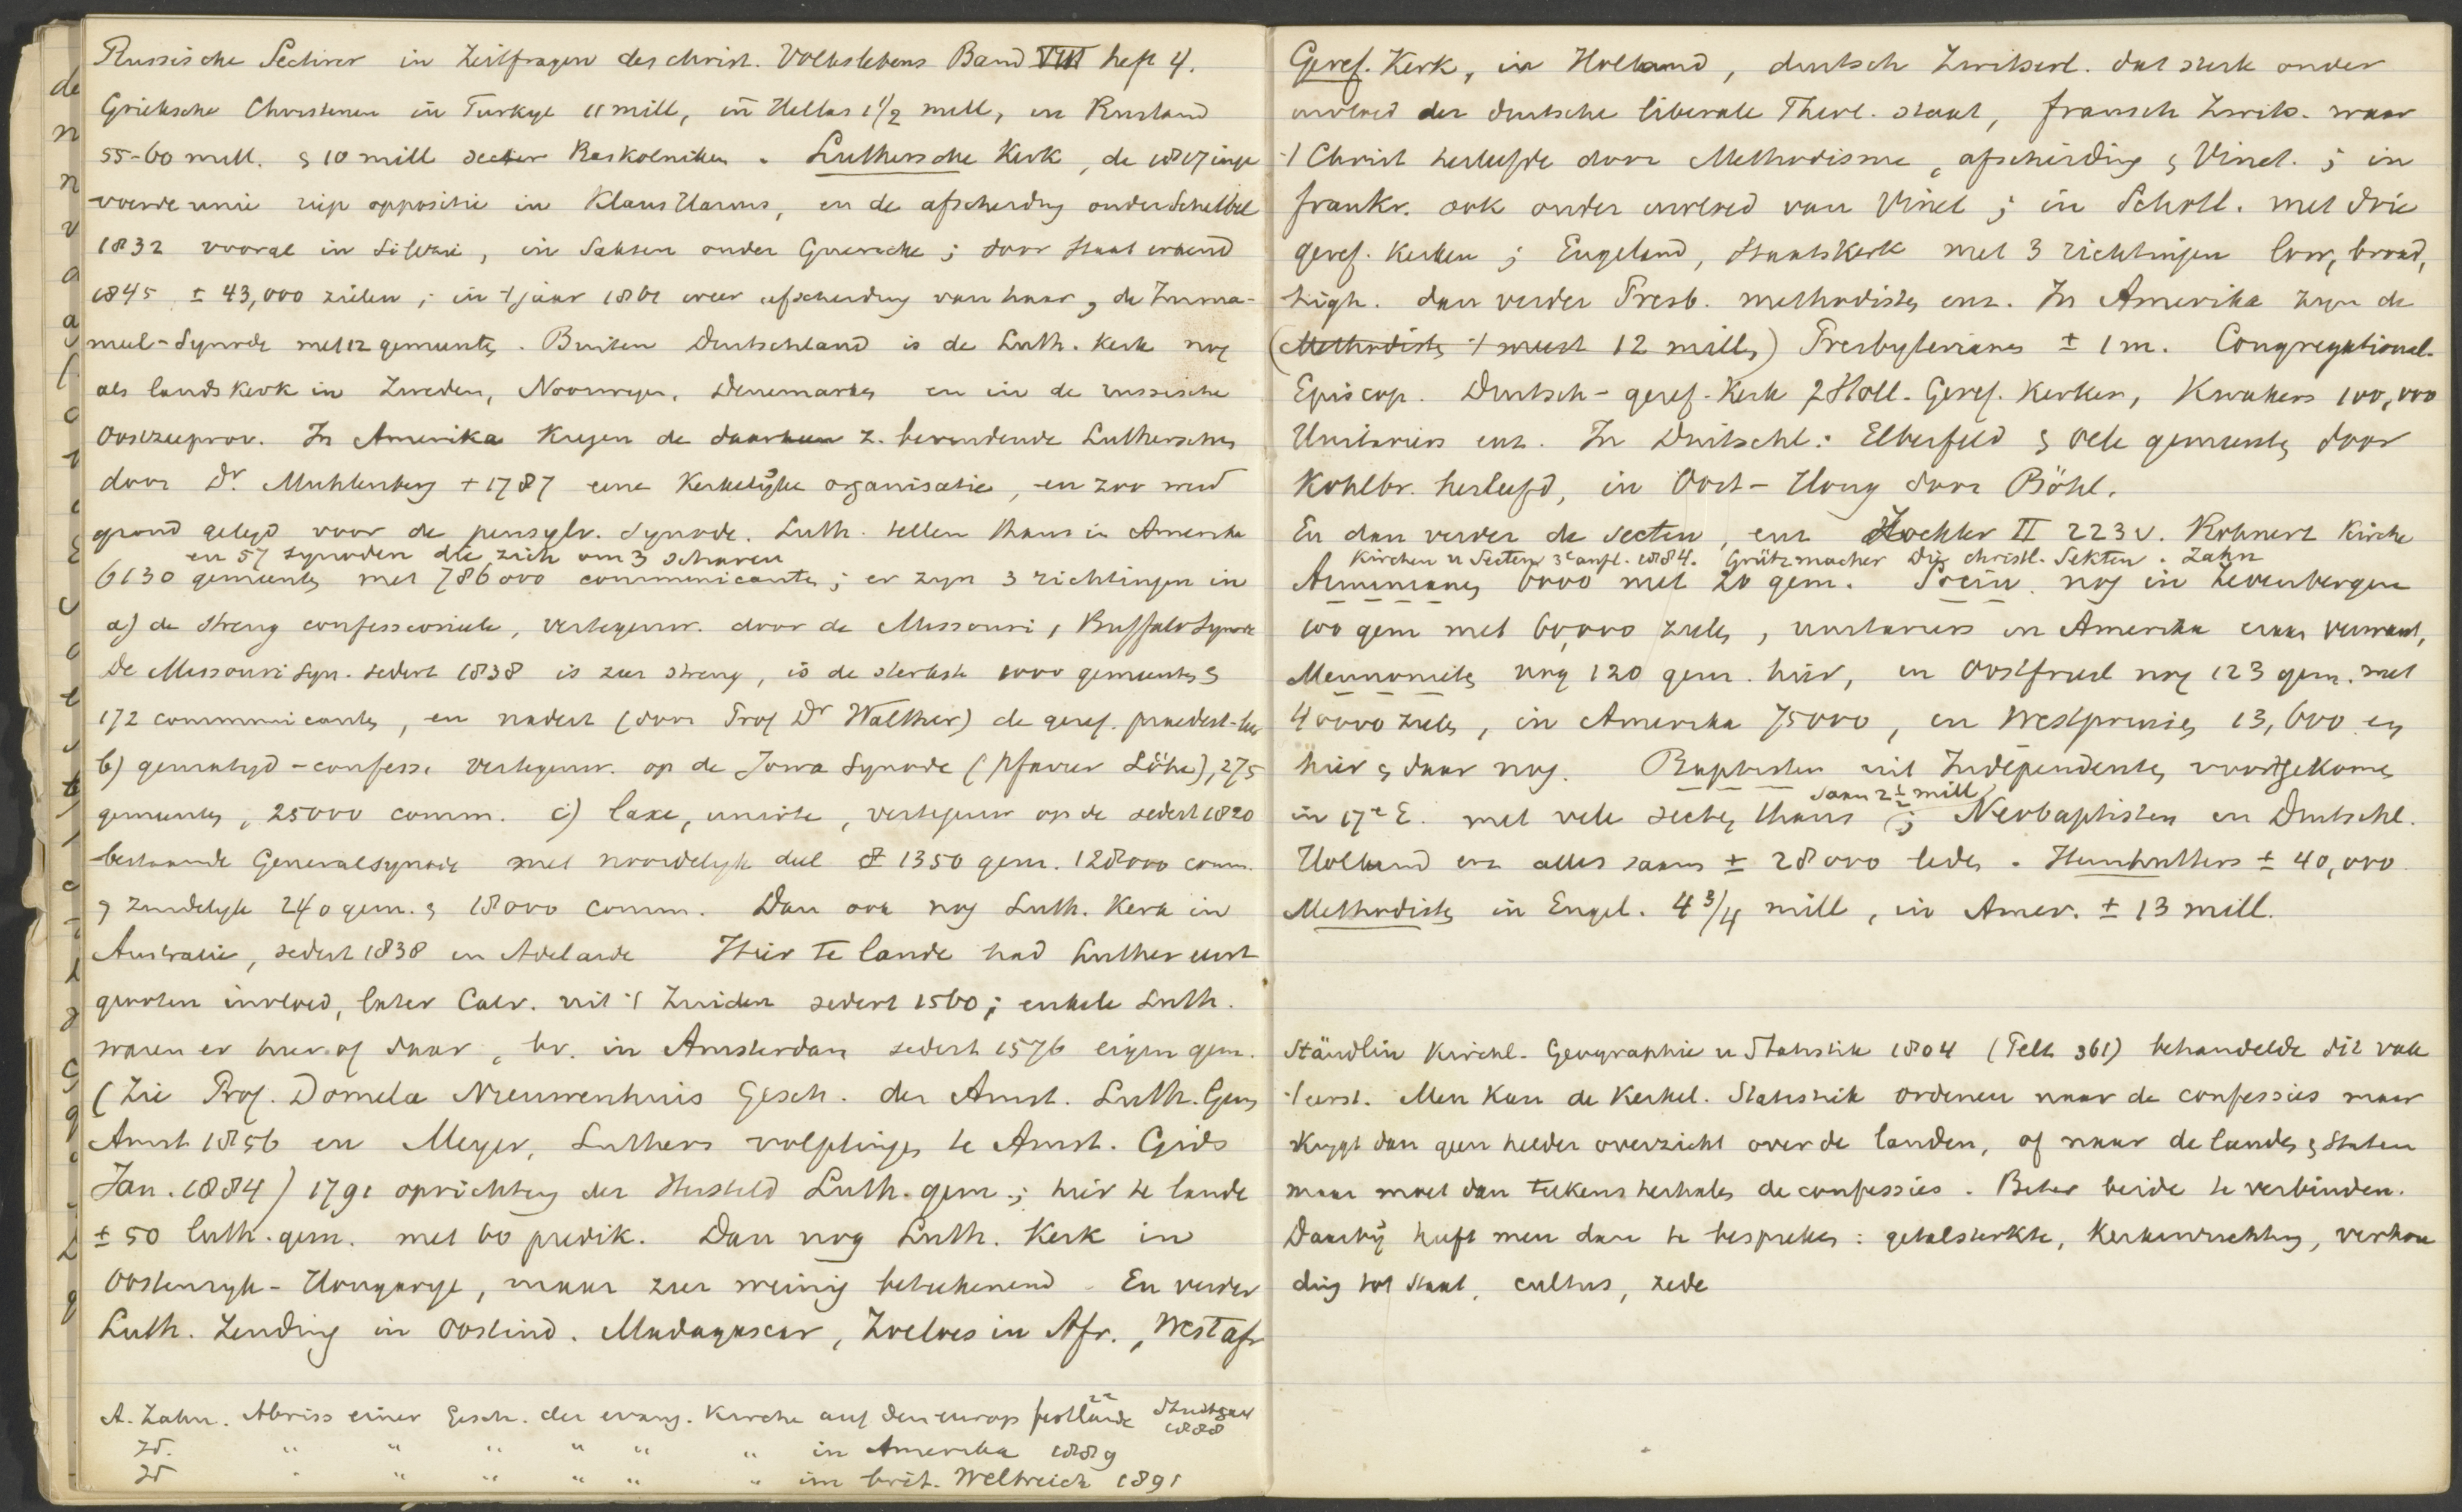 Russische Sectirer in Zeitfragen des christ. Volkslebens Band VIII heft 4.
Grieksche Christenen in Turkye 11 mill, in Hellas 1 1/2 mill, in Rusland
55-60 mill. & 10 mill secten Raskolniken. Luthersche Kerk, de 1817 inge
voerde unie riep oppositie in Klaus Harms, en de afscheiding onder Scheibel
1832 vooral in Silezie, in Saksen onder Guericke; door staat erkend
1845 ± 43,000 zielen; in 't jaar 1861 weer afscheiding van haar, de Imma-
nuel-Synode met 12 gemeenten. Buiten Duitschland is de Luth. Kerk nog
als lands kerk in Zweden, Noorwegen, Denemarken en in de russische
Oostzeeprov. In Amerika kregen de daar z. bevindende Lutherschen
door Dr. Muhlenberg + 1787 eene Kerkelijke organisatie, en zoo werd
grond gelegd voor de pensylv. Synode. Luth. tellen thans in Amerika
en 57 synoden die zich om 3 scharen
6130 gemeenten met 786000 communicanten; er zyn 3 richtingen in
a) de streng confessioneele, vertegenw. door de Missouri, Buffalo Synode
De Missouri Syn. sedert 1838 is zeer streng, is de sterkste 1000 gemeenten &
172 communicanten, en nadert (door Prof Dr Walther) de geref. praedest-leer
b) gematigd-confess. vertegenw. op de Jowa Synode (Pfarrer Löhe), 275
gemeenten, 25000 comm. c) laxe, unirte, vertegenw op de sedert 1820
bestaande Generalsynode met noordelyk deel 1350 gem. 128000 comm.
& zuidelyk 240 gem. & 18000 comm. Dan ook nog Luth. Kerk in
Australie, sedert 1838 in Adelaide Hier te lande had Luther eerst
grooten invloed, later Calv. uit 't Zuiden sedert 1560; enkele Luth.
waren er hier of daar, bv. in Amsterdam sedert 1576 eigen gem.
(Zie Prof. Domela Nieuwenhuis Gesch. der Amst. Luth. Gem
Amst 1856 en Meyer, Luthers volgelingen te Amst. Gids
Jan. 1884) 1791 oprichting der Hersteld Luth. gem.; hier te lande
± 50 luth. gem. met 60 predik. Dan nog Luth. Kerk in
Oostenryk-Hongarye, maar zeer weinig beteekenend. En verder
Luth. Zending in Oostind. Madagascar, Zoeloes in Afr., West afr
A. Zahn. Abriss einer Gesch. der evang. Kirche auf dem europ festlande Stuttgart
1888
Id. " " " " " " in Amerika 1889
Id " " " " " " im brit. Weltreich 1891
Geref. Kerk, in Holland, duitsch Zwitserl. dat sterk onder
invloed der duitsche liberale Theol. staat, fransch Zwits. waar
't Christ herleefde door Methodisme, afscheiding & Vinet.; in
frankr. ook onder invloed van Vinet; in Schotl. met drie
geref. kerken; Engeland, Staatskerk met 3 richtingen low, broad,
high. dan verder Presb. methodisten enz. In Amerika zyn de
(Methodisten 't meest 12 millen) Presbyterianen ± 1 m. Congregational.
Episcop. Duitsch-geref. Kerk 2 Holl. Geref. Kerken, Kwakers 100,000
Unitariers enz. In Duitschl: Elberfeld & vele gemeenten door
Kohlbr. herleefd, in Oost-Hong door Böhl.
En dan verder de secten, enz Zöckler II 223 v. Rohnert Kirche
Kirchen u Secten 3e aufl. 1884. Grützmacher Die christl. Sekten. Zahn
Arminianen 6000 met 20 gem. Socin. nog in Zevenbergen
100 gem met 60,000 zielen, unitariers in Amerika eraan verwant,
Mennonieten nog 120 gem. hier, in Oostfriesl nog 123 gem. met
40000 zielen, in Amerika 75000, in Westpruisen 13,600 en
hier & daar nog. Baptisten uit Independenten voortgekomen
saam 2 1/2 mill
in 17e E. met vele secten thans; Neobaptisten in Duitschl.
Holland enz alles saam ± 28000 leden. Hernhutters ± 40,000
Methodisten in Engel. 4 3/4 mill, in Amer. ± 13 mill.
Stäudlin Kirchl. Geographie u Statistik 1804 (Telt 361) behandelde dit vak
't eerst. Men kan de Kerkel. Statistiek ordenen naar de confessies maar
krygt dan geen helder overzicht over de landen, of naar de landen & Staten
maar moet dan telkens herhalen de confessies. Beter beide te verbinden.
Daarbij heeft men dan te bespreken: getalsterkte, Kerkinrichting, verhou
ding tot Staat, cultus, zede